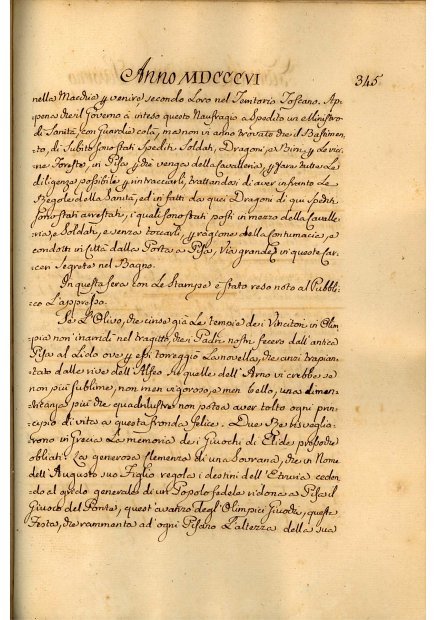 Anno MDCCCVI 345
nella Macchia p venire, secondo Loro nel Territorio Toscano. Ap-
pena che il Governo à inteso questo Naufragio à Spedito un Ministro
di Sanità, con Guardie colà, ma non àn trovato che il Bastimen-
to, di Subito sono stati Spediti Soldati, Dragoni, e Birri, p le vici-
ne Foreste, in Pisa p che venga della Cavalleria, p fare tutte Le
diligenze possibile p rintracciarli, trattandosi di aver infranto Le
Regole della Sanità, ed in fatti da quei Dragoni di qui Spediti
sono stati arrestati, i quali sono stati posti in mezzo della Cavalle-
ria, e Soldati, e senza toccarli, p ragione della Contumacia, e
condotti in Città dalla Porta a Pisa, Via grande, in queste Car-
ceri Segrete nel Bagno.
In questa sera con Le Stampe è stato reso noto al Pubbli-
co L'appresso.
Se L'Olivo, che cinse già Le tempie dei Vincitori in Olim-
pia non inaridì nel tragitto, che i Padri nostri fecero dall'antica
Pisa al Lido ove p essi torreggiò La novella, che anzi trapian-
tato dalle rive dell'Alfeo su quelle dell'Arno vi crebbe se
non più sublime, non men vigoroso, e men bello, una dimen-
ticanza più che quadrilustre non potea aver tolto ogni prin-
cipio di vita a questa fronda felice. Due Re risveglia-
rono in Grecia La memoria dei Giuochi di Elide pressochè
obliati. La generosa Clemenza di una Sovrana, che in Nome
dell'Augusto suo Figlio regola i destini dell'Etruria ceden-
do al grido generale di un Popolo fedele ridona a Pisa il
Giuoco del Ponte, quest'avanzo degl'Olimpici Giuochi, questa
Festa, che rammenta ad ogni Pisano L'altezza della sua